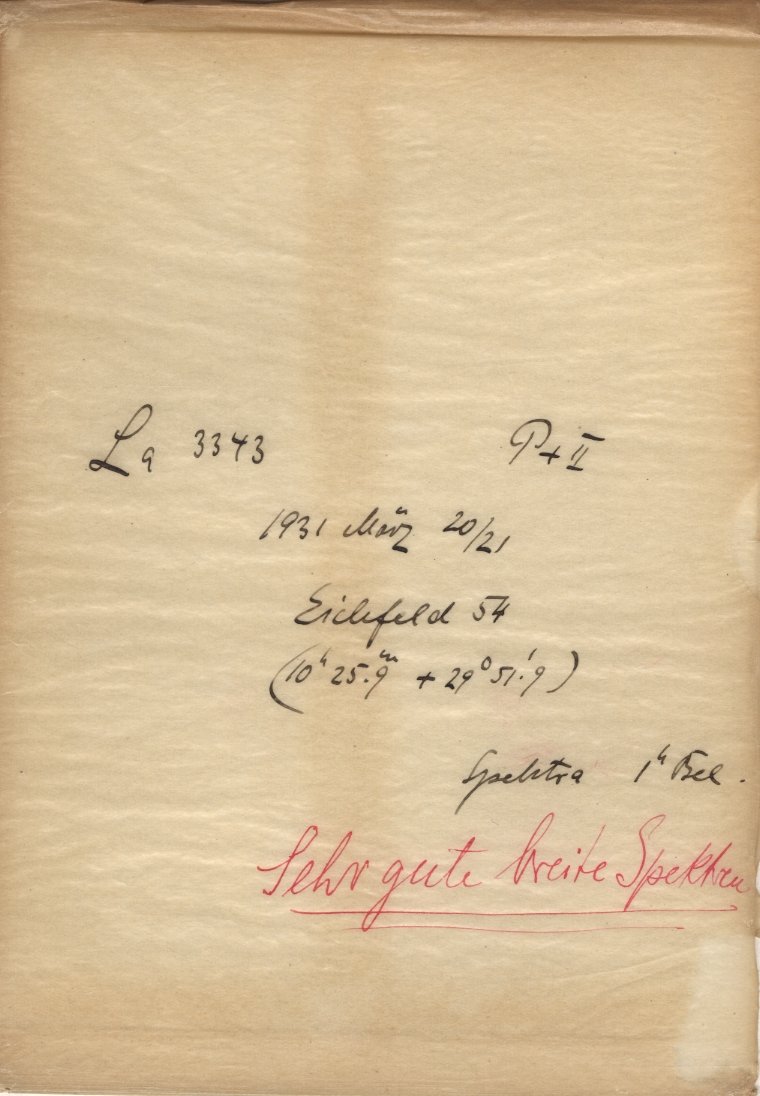 La 3343 P+II
1931 März 20/21
Eichfeld 54
(10ʰ 25.9ᵐ + 29⁰ 51.'9)
Spektra 1ʰ Bel.
Sehr gute breite Spektren